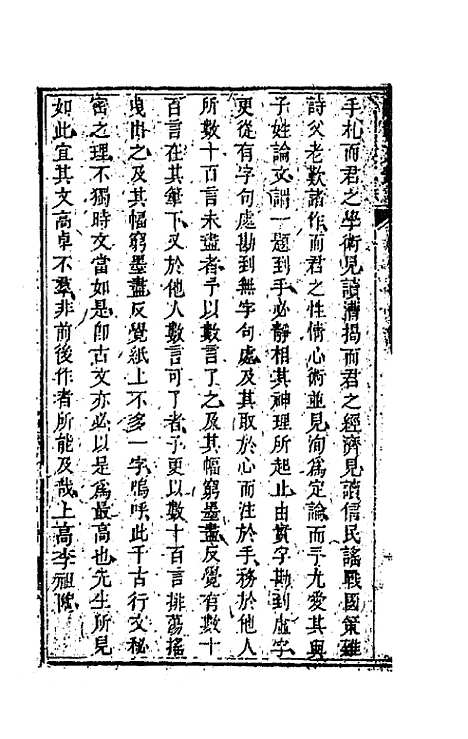 手札而君之學術見讀漕揭而君之經濟見讀信民謠戰國策雖
詩父老歎諸作而君之性情心術並見洵爲定論而予尤愛其與
子姓論文謂一題到手必靜相其神理所起止由實字勘到虛字
更從有字句處勘到無字句處及其取於心而注於手務於他人
所數十百言未盡者予以數言了之及其幅窮墨盡反覺有數十
百言在其筆下又於他人數言可了者予更以數十百言排蕩搖
曳出之及其幅窮墨盡反覺紙上不多一字嗚呼此千古行文秘
密之理不獨時文當如是卽古文亦必以是爲最高也先生所見
如此宜其文高卓不羣非前後作者所能及哉上高李祖陶